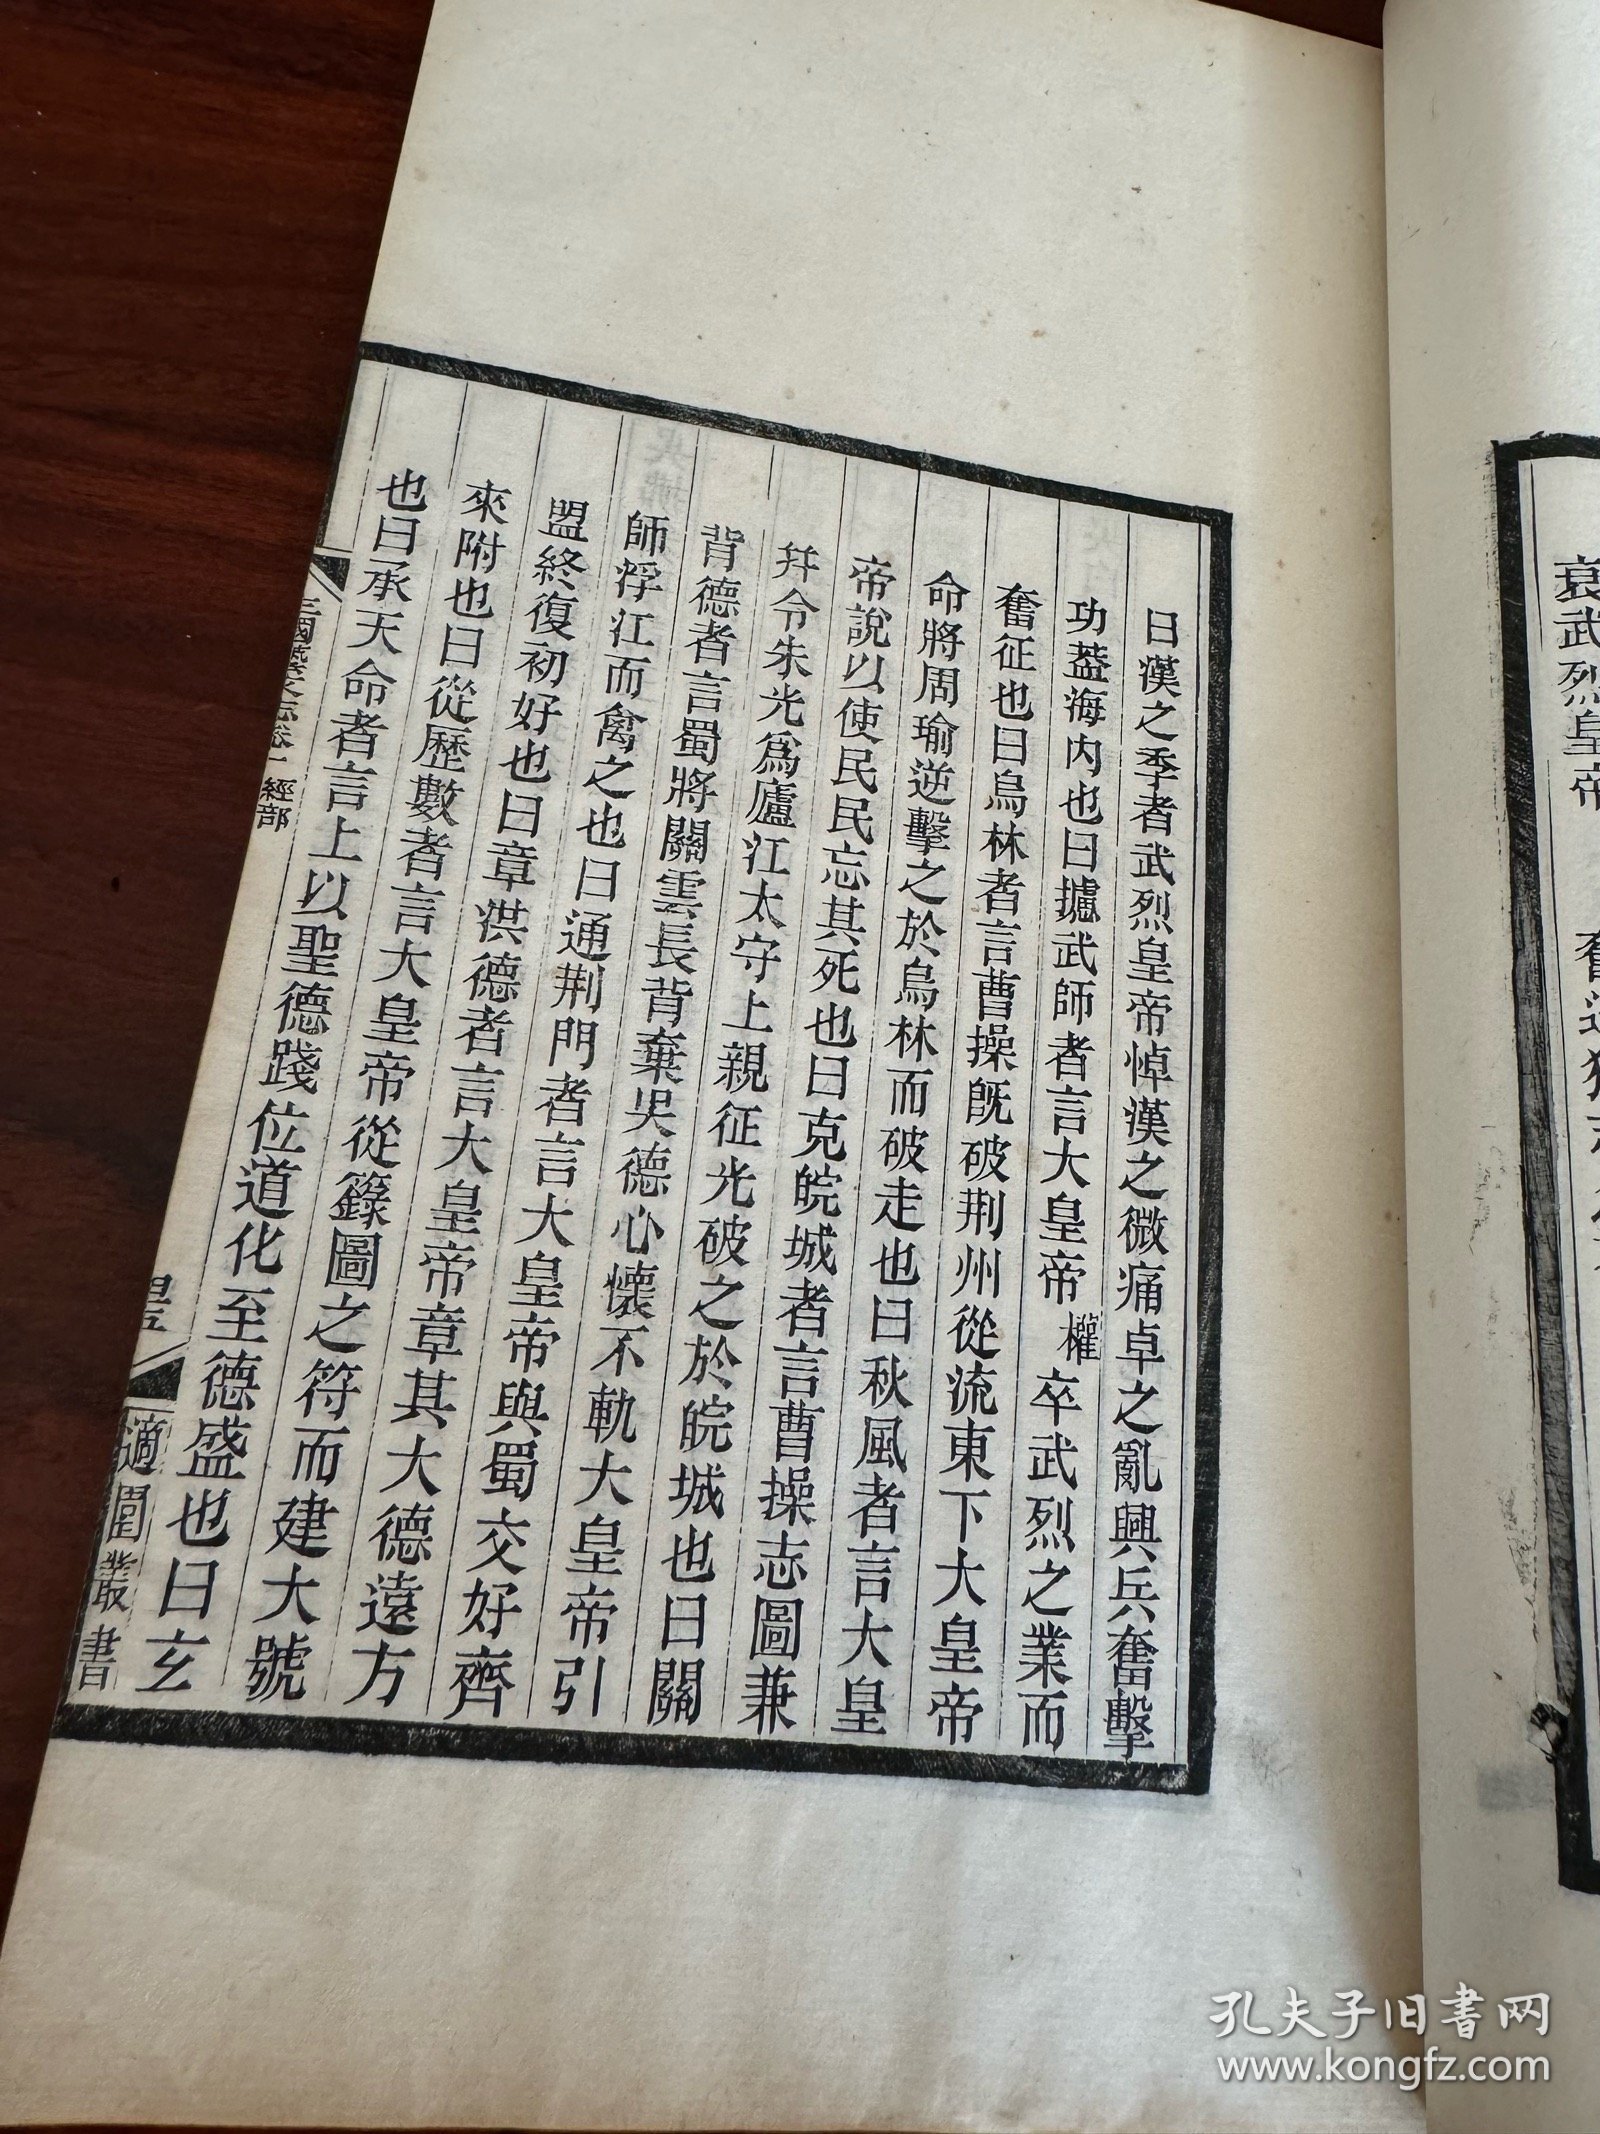 曰漢之季者武烈皇帝悼漢之微痛卓之亂興兵奮擊
功葢海内也曰攄武師者言大皇帝權卒武烈之業而
奮征也曰烏林者言曹操旣破荆州從流東下大皇帝
命將周瑜逆擊之於烏林而破走也曰秋風者言大皇
帝說以使民民忘其死也曰克皖城者言曹操志圖兼
并令朱光爲廬江太守上親征光破之於皖城也曰關
背德者言蜀將關雲長背棄吳德心懷不軌大皇帝引
師浮江而禽之也曰通荆門者言大皇帝與蜀交好齊
盟終復初好也曰章洪德者言大皇帝章其大德遠方
來附也曰從歷數者言大皇帝從籙圖之符而建大號
也曰承天命者言上以聖德踐位道化至德盛也曰玄
三國藝文志卷一 經部
適園叢書
哀武烈皇帝
孔夫子旧书网
www.kongfz.com